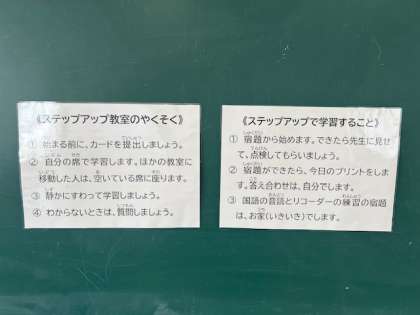 《ステップアップ教室のやくそく》
① 始まる前に、カードを提出しましょう。
② 自分の席で学習します。ほかの教室に
移動した人は、空いている席に座ります。
③ 静かにすわって学習しましょう。
④ わからないときは、質問しましょう。
《ステップアップで学習すること》
① 宿題から始めます。できたら先生に見せ
て、点検してもらいましょう。
② 宿題ができたら、今日のプリントをしま
す。答え合わせは、自分でします。
③ 国語の音読とリコーダーの練習の宿題
は、お家(いきいき)でします。